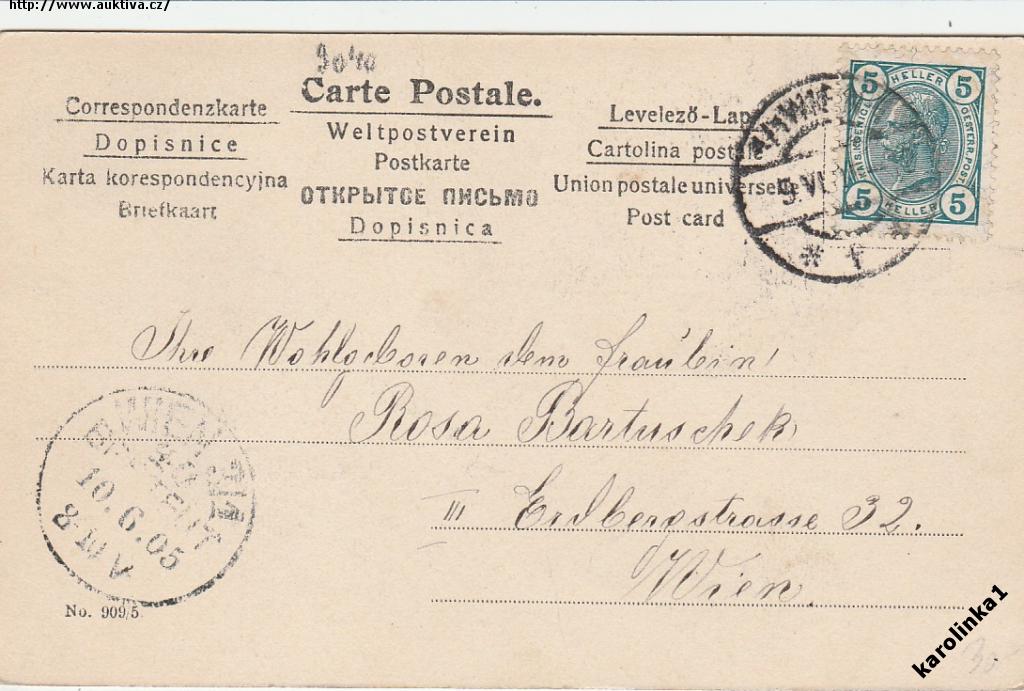 http://www.auktiva.cz/
Carte Postale.
Correspondenzkarte
Dopisnice
Karta korespondencyjna
Briefkaart
Weltpostverein
Postkarte
ОТКРЫТОЕ ПИСЬМО
Dopisnica
Levelező-Lap
Cartolina postale
Union postale universelle
Post card
5 HELLER 5
5 HELLER 5
9. VI
* f *
Ihre Wohlgeboren dem Fräulein
Rosa Bartuschek
III Erdbergstrasse 32.
Wien.
WIEN
BESTELLT
10. 6. 05
No. 909/5.
karolinka1